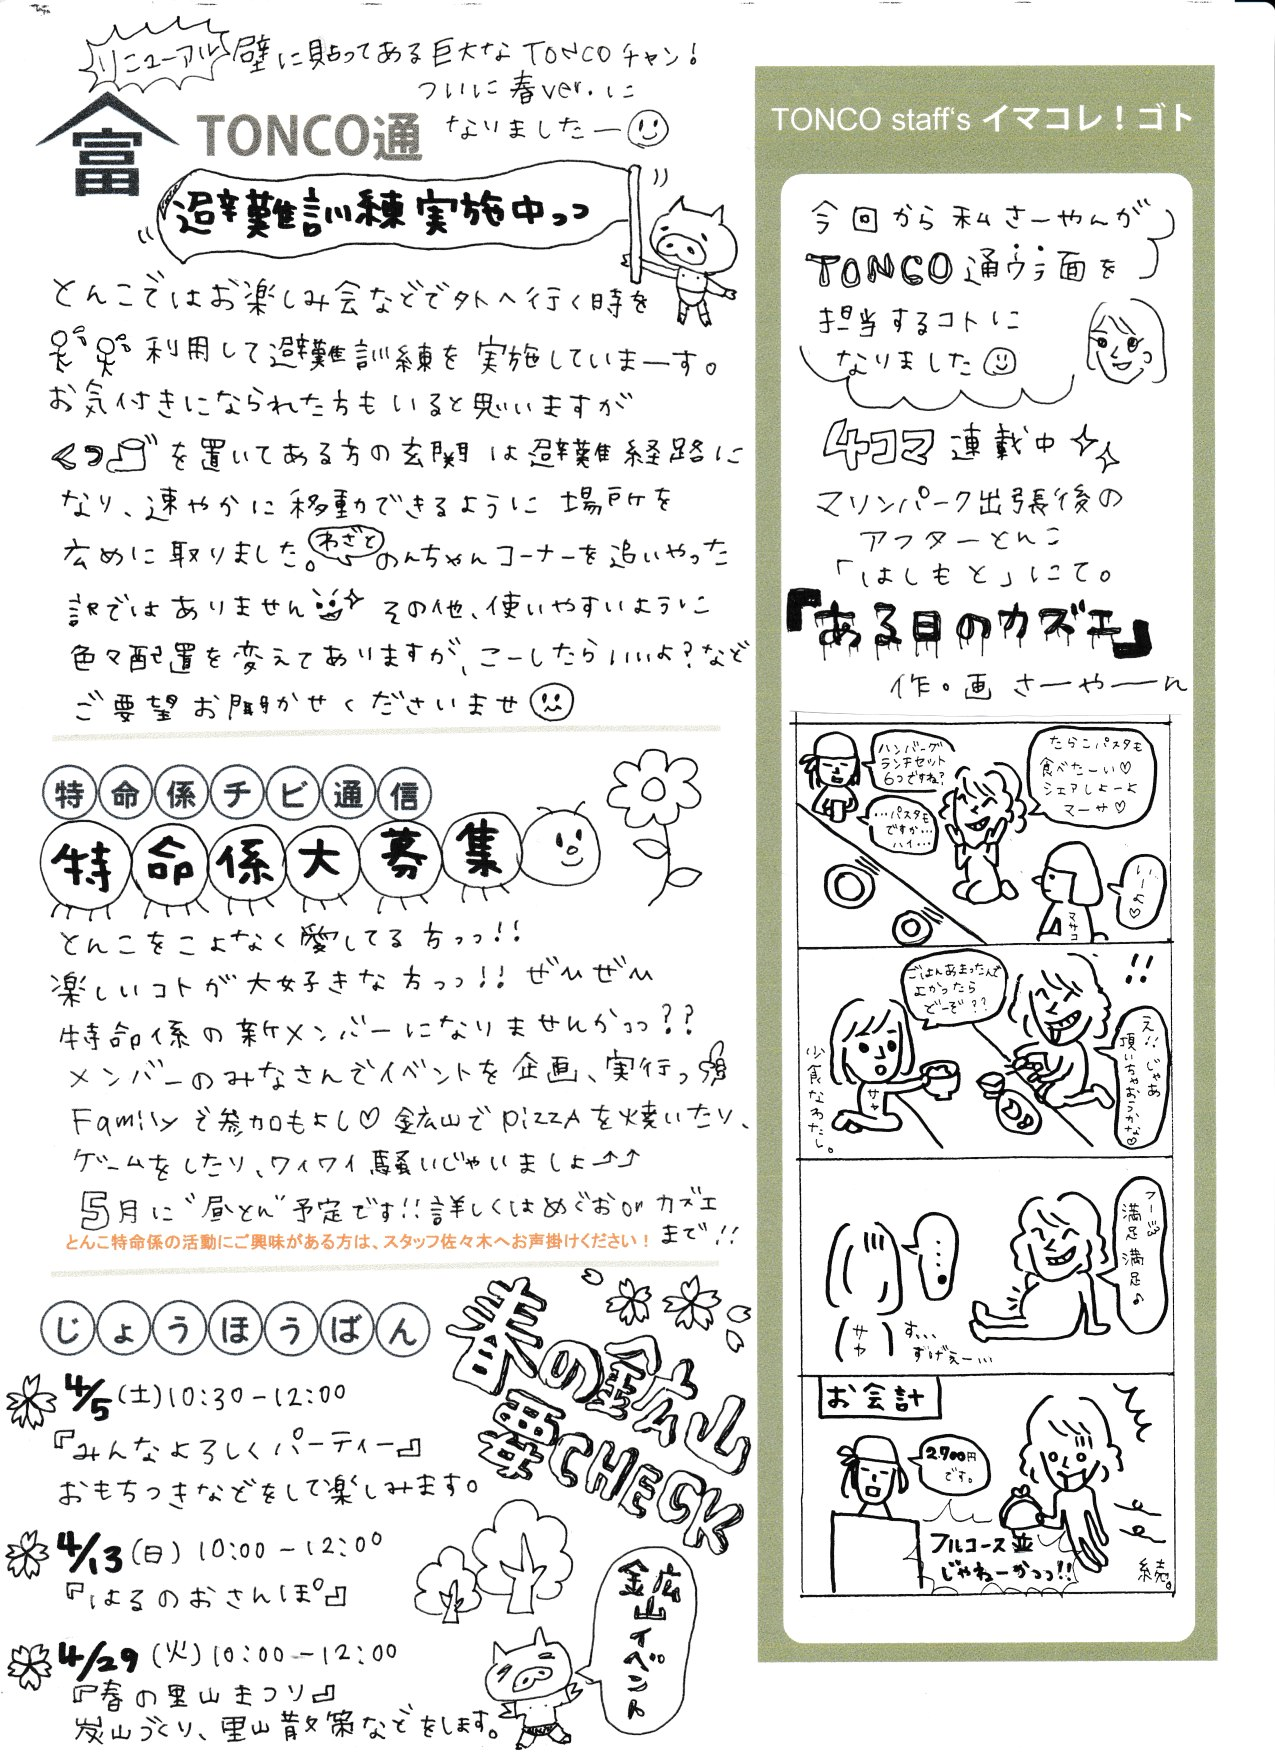 リニューアル 壁に貼ってある巨大なTONCOチャン!
ついに春ver.に
なりましたー
富
TONCO通
避難訓練実施中っっ
とんこではお楽しみ会などで外へ行く時を
利用して避難訓練を実施していまーす。
お気付きになられた方もいると思いますが
くつ を置いてある方の玄関は避難経路に
なり、速やかに移動できるように場所を
広めに取りました。わざとのんちゃんコーナーを追いやった
訳ではありません その他、使いやすいように
色々配置を変えてありますが、こーしたらいいよ?など
ご要望お聞かせくださいませ
特命係チビ通信
特命係大募集
とんこをこよなく愛してる方っっ!!
楽しいコトが大好きな方っっ!! ぜひぜひ
特命係の新メンバーになりませんかっっ??
メンバーのみなさんでイベントを企画、実行っ
Familyで参加もよし♡ 鉱山でPIZZAを焼いたり、
ゲームをしたり、ワイワイ騒いじゃいましょ↑↑
5月に"昼とん"予定です!!詳しくはめぐおorカズエ
まで!!
とんこ特命係の活動にご興味がある方は、スタッフ佐々木へお声掛けください!
じょうほうばん
春の鉱山
要CHECK
4/5(土)10:30-12:00
『みんなよろしくパーティー』
おもちつきなどをして楽しみます。
4/13(日)10:00-12:00
『はるのおさんぽ』
4/29(火)10:00-12:00
『春の里山まつり』
炭山づくり、里山散策などをします。
鉱山イベント
TONCO staff's イマコレ!ゴト
今回から私さーやんが
TONCO通ウラ面を
担当するコトに
なりました
4コマ連載中
マリンパーク出張後の
アフターとんこ
「はしもと」にて。
『ある日のカズエ』
作。画 さーやーん
ハンバーグ
ランチセット
6つですね?
たらこパスタも
食べたーい♡
シェアしよーよ
マーサ♡
…パスタも
ですか…
ハイ…
いーよ♡
マサコ
ごはんあまったんで
よかったら
どーぞ??
!!
え!!じゃあ
頂いちゃおうかな♡
サヤ
少食なわたし。
……。
フーッ
満足満足♪
サヤ
す…
すげぇー…
お会計
2,700円
です。
フルコース並
じゃねーかっっ!!
続。